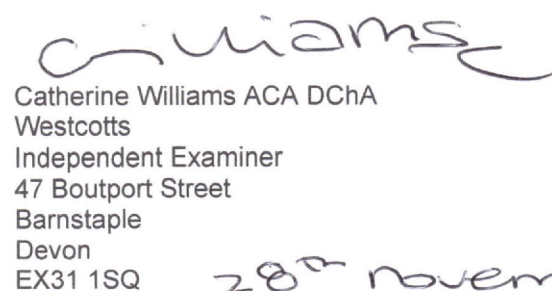 C Williams
Catherine Williams ACA DChA
Westcotts
Independent Examiner
47 Boutport Street
Barnstaple
Devon
EX31 1SQ 28th novem